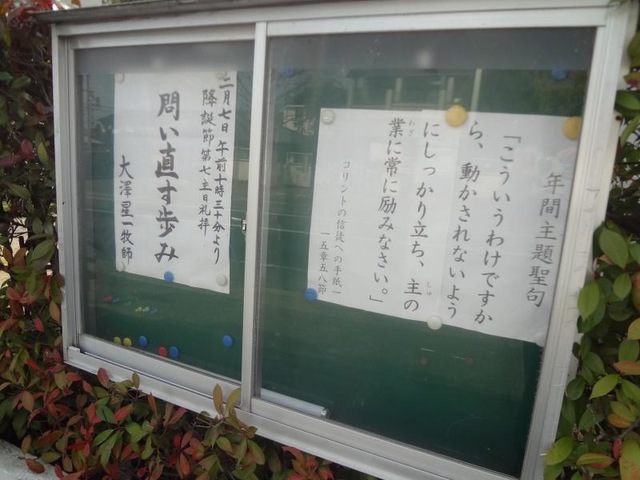 年間主題聖句
「こういうわけですか
ら、動かされないよう
にしっかり立ち、主の
しゅ
業に常に励みなさい。」
わざ
コリントの信徒への手紙一
一五章五八節
二月七日 午前十時三十分より
降誕節第七主日礼拝
問い直す歩み
大澤星一牧師